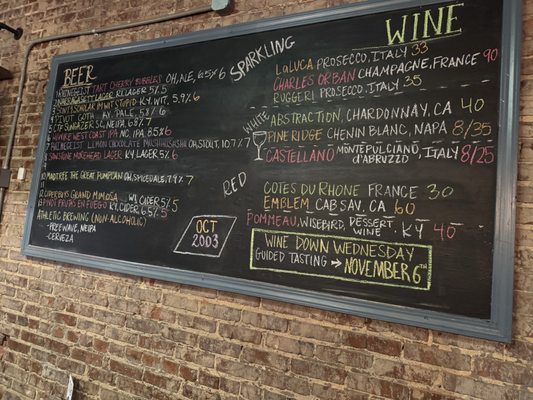 BEER
TART CHERRY BUBBLES OH, ALE, 6.5% 6
STUPID KY, WIT, 5.9% 6
PIVOT GOTH KY, PALE, 5.8% 6
WEST COAST IPA MO, IPA, 8.5% 6
LEMON CHOCOLATE OH, STOUT, 10.7% 7
MOREHEAD LAGER KY LAGER 5% 6
MADTREE THE GREAT PUMPCAN OH, SPICED ALE, 7.9% 7
GRAND MIMOSA WI, CIDER 5% 5
PAPAS EN FUEGO KY, CIDER 6.5% 5
ATHLETIC BREWING (NON-ALCOHOLIC)
- FREE WAVE, NEIPA
- CERVEZA
OCT
2003
WINE
SPARKLING
LALUCA PROSECCO, ITALY 33
CHARLES ORBAN CHAMPAGNE, FRANCE 90
RUGGERI PROSECCO, ITALY 35
WHITE
ABSTRACTION, CHARDONNAY, CA 40
PINE RIDGE CHENIN BLANC, NAPA 8/35
CASTELLANO MONTEPULCIANO D'ABRUZZO, ITALY 8/25
RED
COTES DU RHONE FRANCE 30
EMBLEM CAB SAV, CA 60
POMMEAU, WISEBIRD, DESSERT WINE, KY 40
WINE DOWN WEDNESDAY
GUIDED TASTING → NOVEMBER 6TH